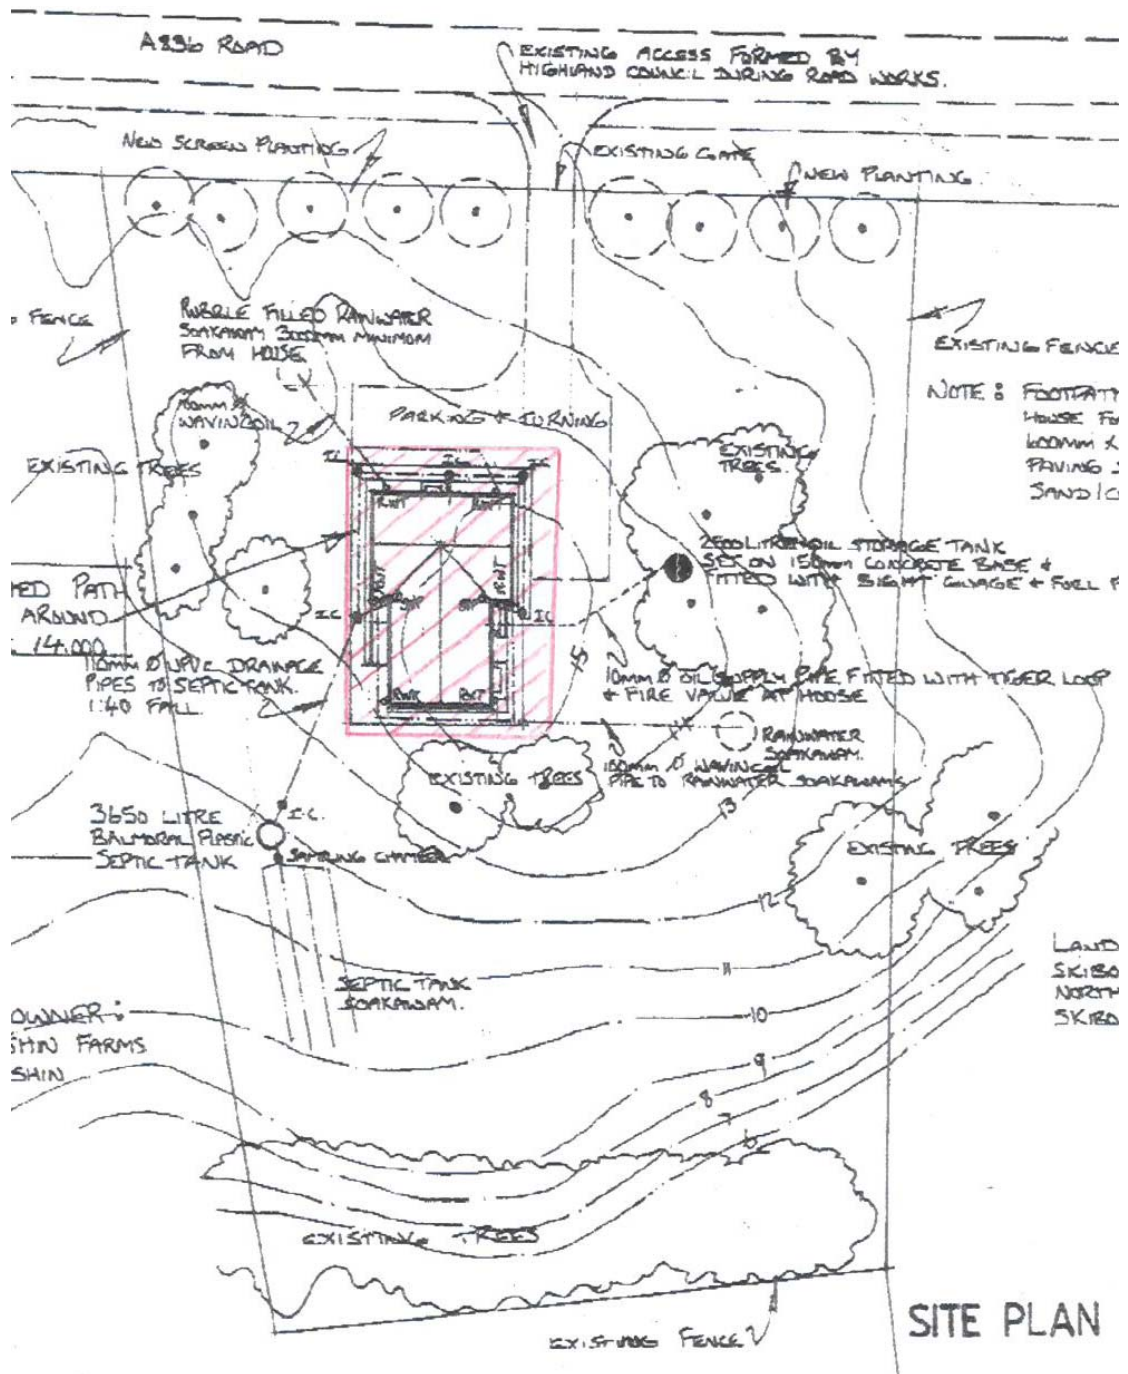 A836 ROAD
EXISTING ACCESS FORMED BY
HIGHLAND COUNCIL DURING ROAD WORKS.
NEW SCREEN PLANTING
EXISTING GATE
NEW PLANTING
FENCE
RUBBLE FILLED RAINWATER
SOAKAWAY MINIMUM
FROM HOUSE
EXISTING FENCE
100mm Ø
WAVINCOIL
PARKING & TURNING
NOTE : FOOTPATH
HOUSE
600mm X
PAVING
SAND/C
EXISTING TREES
EXISTING
TREES.
I.C.
I.C.
I.C.
RWP
RWP
2500 LITRE OIL STORAGE TANK
SET ON 150mm CONCRETE BASE &
FITTED WITH SIGHT GUAGE & FULL
PATH
AROUND
14.000
I.C.
I.C.
110mm Ø UPVC DRAINAGE
PIPES TO SEPTIC TANK.
1:40 FALL.
15
10mm Ø OIL SUPPLY PIPE FITTED WITH TIGER LOOP
& FIRE VALVE AT HOUSE
RAINWATER
SOAKAWAY.
100mm Ø WAVINCOIL
PIPE TO RAINWATER SOAKAWAYS
EXISTING TREES
13
3650 LITRE
BALMORAL PLASTIC
SEPTIC TANK
I.C.
SAMPLING CHAMBER
EXISTING TREES
12
11
SEPTIC TANK
SOAKAWAY.
LAND
SKIBO
NORTH
SKIBO
OWNER :
SHIN FARMS
SHIN
10
9
8
7
6
EXISTING TREES
EXISTING FENCE
SITE PLAN